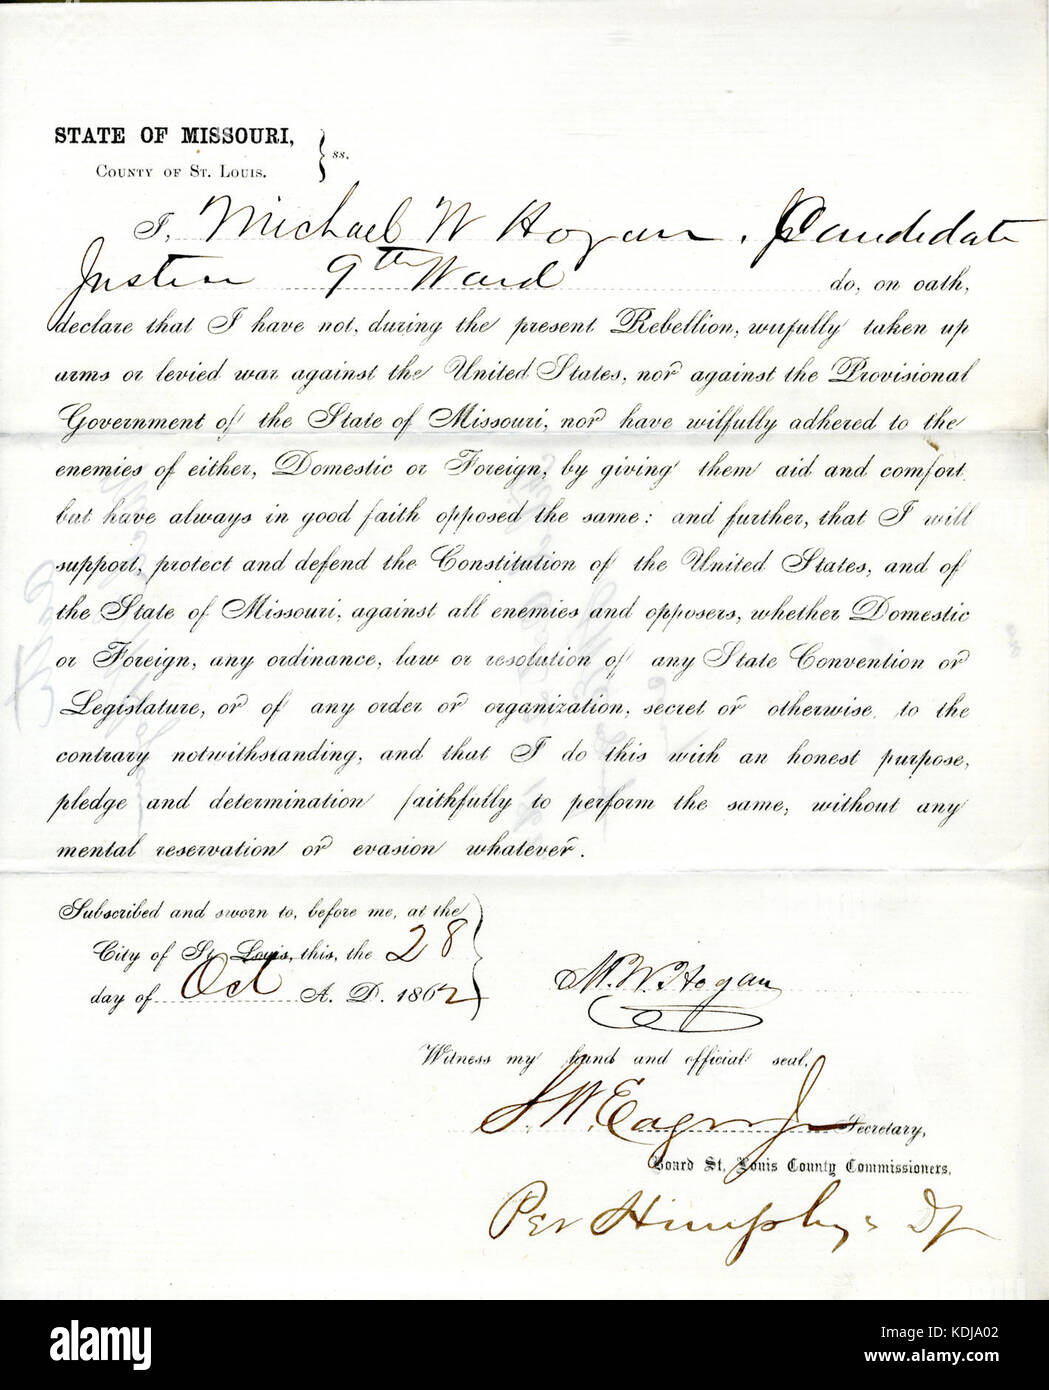 STATE OF MISSOURI,
County of St. Louis. } ss.
I, Michael W Hogan, Candidate
Justice 9th Ward do, on oath,
declare that I have not, during the present Rebellion, wilfully taken up
arms or levied war against the United States, nor against the Provisional
Government of the State of Missouri, nor have wilfully adhered to the
enemies of either, Domestic or Foreign, by giving them aid and comfort,
but have always in good faith opposed the same: and further, that I will
support, protect and defend the Constitution of the United States, and of
the State of Missouri, against all enemies and opposers, whether Domestic
or Foreign, any ordinance, law or resolution of any State Convention or
Legislature, or of any order or organization, secret or otherwise, to the
contrary notwithstanding, and that I do this with an honest purpose,
pledge and determination faithfully to perform the same, without any
mental reservation or evasion whatever.
Subscribed and sworn to, before me, at the
City of St. Louis, this, the 28
day of Oct A. D. 1862
M. W. Hogan
Witness my hand and official seal,
S. W. Eager Jr Secretary,
Board St. Louis County Commissioners.
Per Humphrys
alamy
alamy
Image ID: KDJA02
www.alamy.com